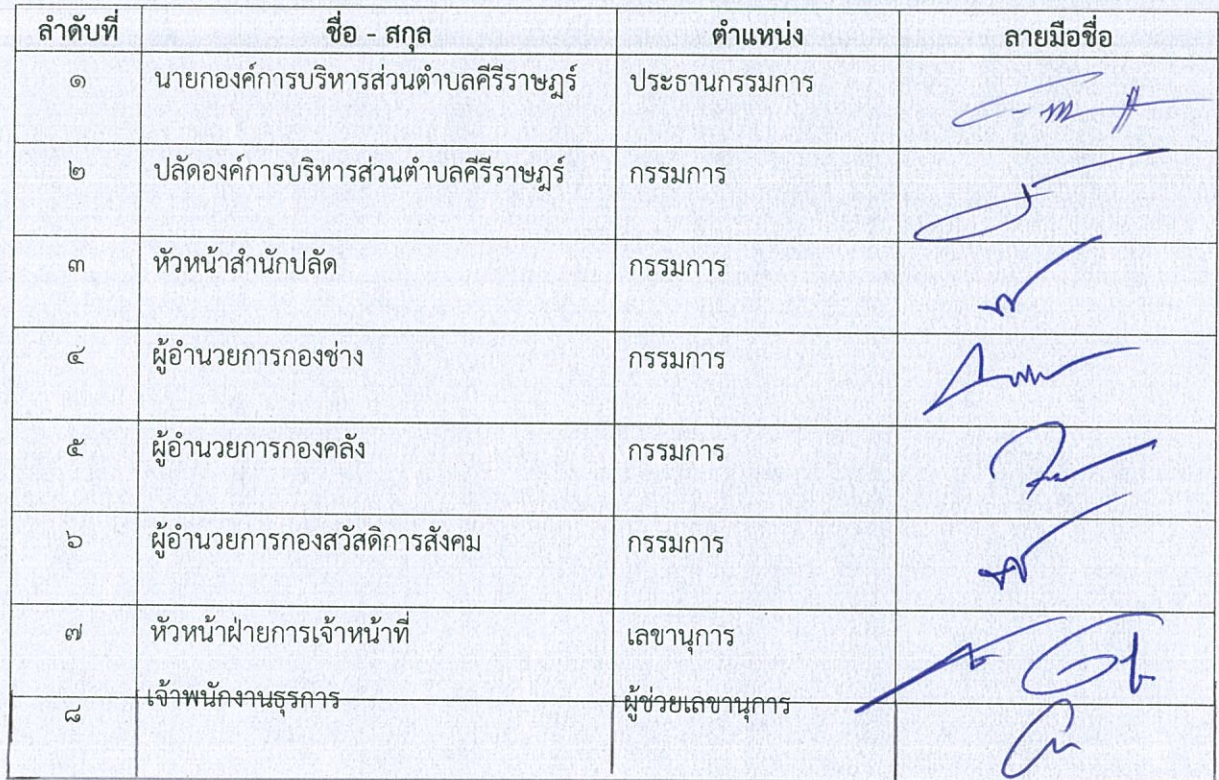 ลำดับที่ ชื่อ - สกุล ตำแหน่ง ลายมือชื่อ
๑ นายกองค์การบริหารส่วนตำบลคีรีราษฎร์ ประธานกรรมการ
๒ ปลัดองค์การบริหารส่วนตำบลคีรีราษฎร์ กรรมการ
๓ หัวหน้าสำนักปลัด กรรมการ
๔ ผู้อำนวยการกองช่าง กรรมการ
๕ ผู้อำนวยการกองคลัง กรรมการ
๖ ผู้อำนวยการกองสวัสดิการสังคม กรรมการ
๗ หัวหน้าฝ่ายการเจ้าหน้าที่ เลขานุการ
๘ เจ้าพนักงานธุรการ ผู้ช่วยเลขานุการ